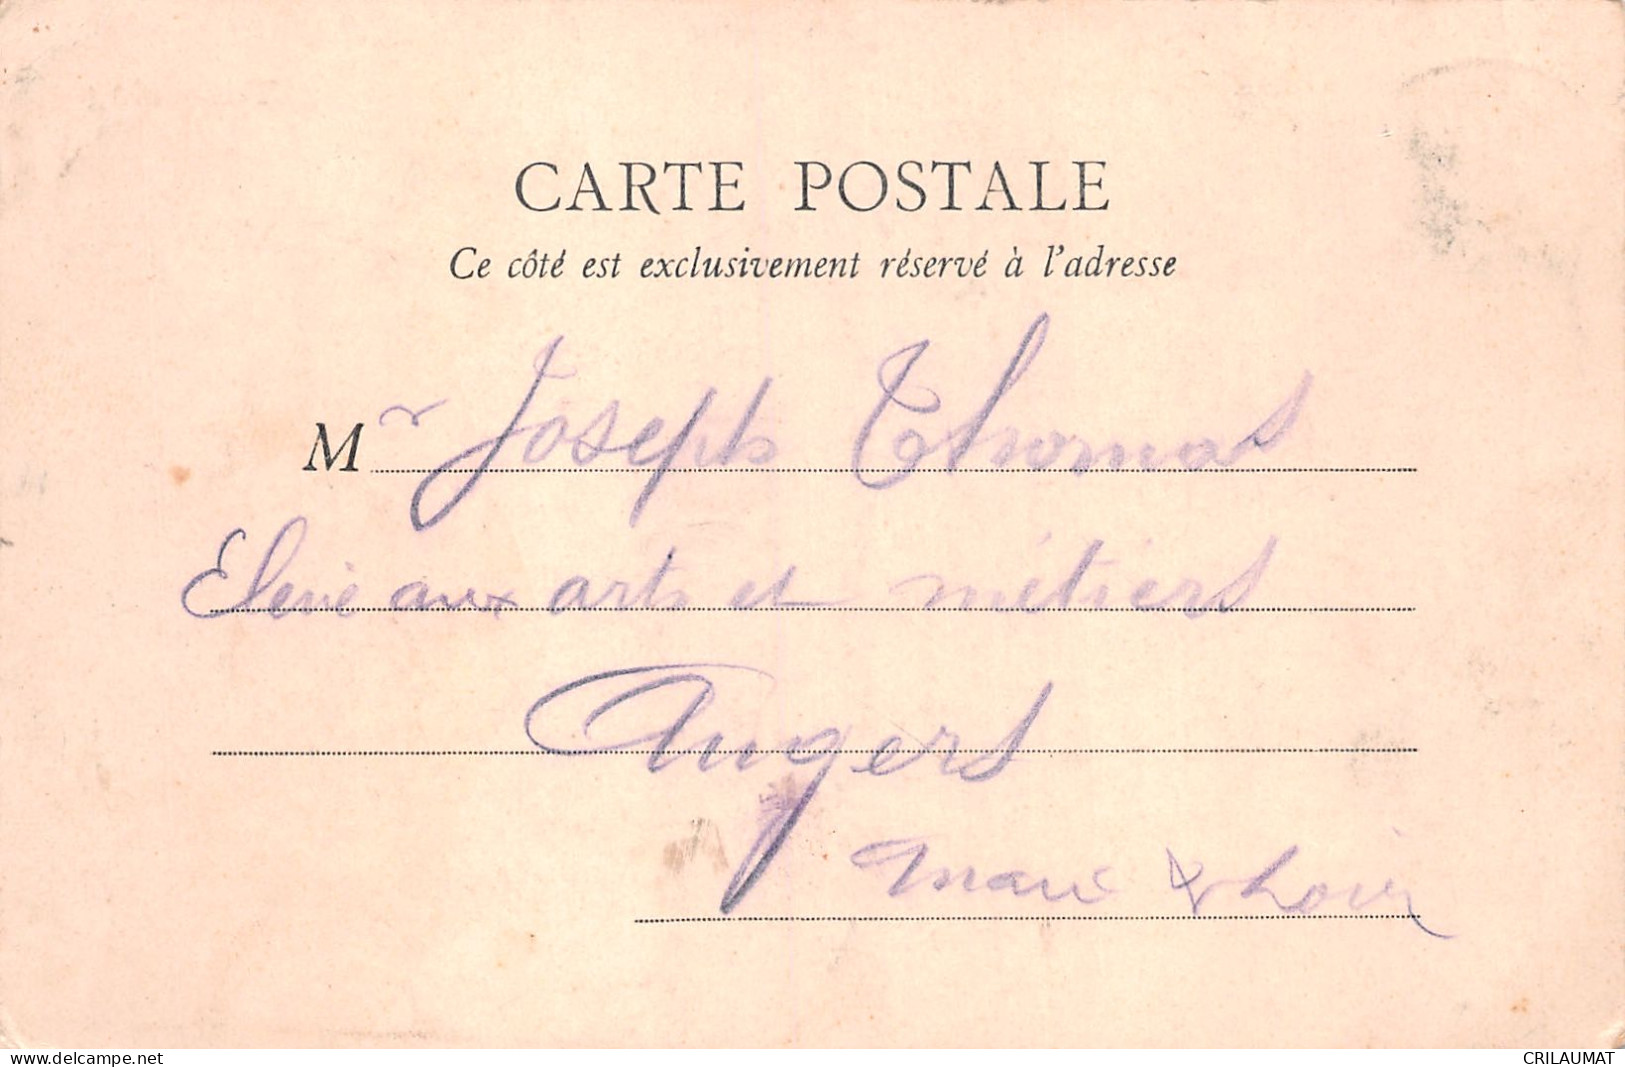 CARTE POSTALE
Ce côté est exclusivement réservé à l'adresse
Mr Joseph Thomas
Eleve aux arts et métiers
Angers
Maine & Loire
delcampe.net
CRILAUMAT